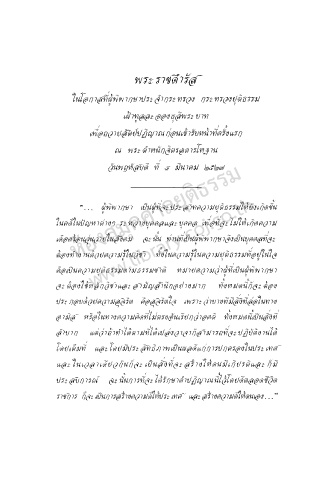 พระราชดำรัส
ในโอกาสที่ผู้พิพากษาประจำกระทรวง กระทรวงยุติธรรม
เฝ้าทูลละอองธุลีพระบาท
เพื่อถวายสัตย์ปฏิญาณก่อนเข้ารับหน้าที่ครั้งแรก
ณ พระตำหนักจิตรลดารโหฐาน
วันพฤหัสบดี ที่ ๘ มีนาคม ๒๕๒๗
"... ผู้พิพากษา เป็นผู้ที่จะประสาทความยุติธรรมให้ยิ่งเกิดขึ้น
ในคดีในปัญหาต่างๆ ระหว่างบุคคลและบุคคล เพื่อที่จะไม่ให้เกิดความ
เดือดร้อนวุ่นวายในสังคม ฉะนั้น ท่านที่เป็นผู้พิพากษาจึงเป็นบุคคลที่จะ
ต้องทำงานด้วยความรู้ในวิชา ทั้งในความรู้ในความยุติธรรมที่อยู่ในใจ
คือเป็นความยุติธรรมตามธรรมชาติ หมายความว่าผู้ที่เป็นผู้พิพากษา
จะต้องใช้หลักวิชาและสามัญสำนึกอย่างมาก ทั้งหมดนี้ก็จะต้อง
ประกอบด้วยความสุจริต คือสุจริตใจ เพราะว่าบางทีมีสิ่งที่ล่อในทาง
อามิส หรือในทางความคิดที่ไม่ตรงอันเรียกว่าอคติ ทั้งหมดนี้เป็นสิ่งที่
ลำบาก แต่ว่าถ้าทำได้ตามที่ได้เปล่งวาจาก็สามารถที่จะปฏิบัติงานได้
โดยเต็มที่ และโดยมีประสิทธิภาพเป็นผลดีแก่การปกครองในประเทศ
และในเวลาเดียวกันก็จะเป็นสิ่งที่จะสร้างให้ตนมีเกียรติและก็มี
ประสบการณ์ ฉะนั้นการที่จะได้รักษาคำปฏิญาณนี้ไว้โดยตลอดชีวิต
ราชการ ก็จะเป็นการสร้างความดีให้ประเทศ และสร้างความดีให้ตนเอง..."